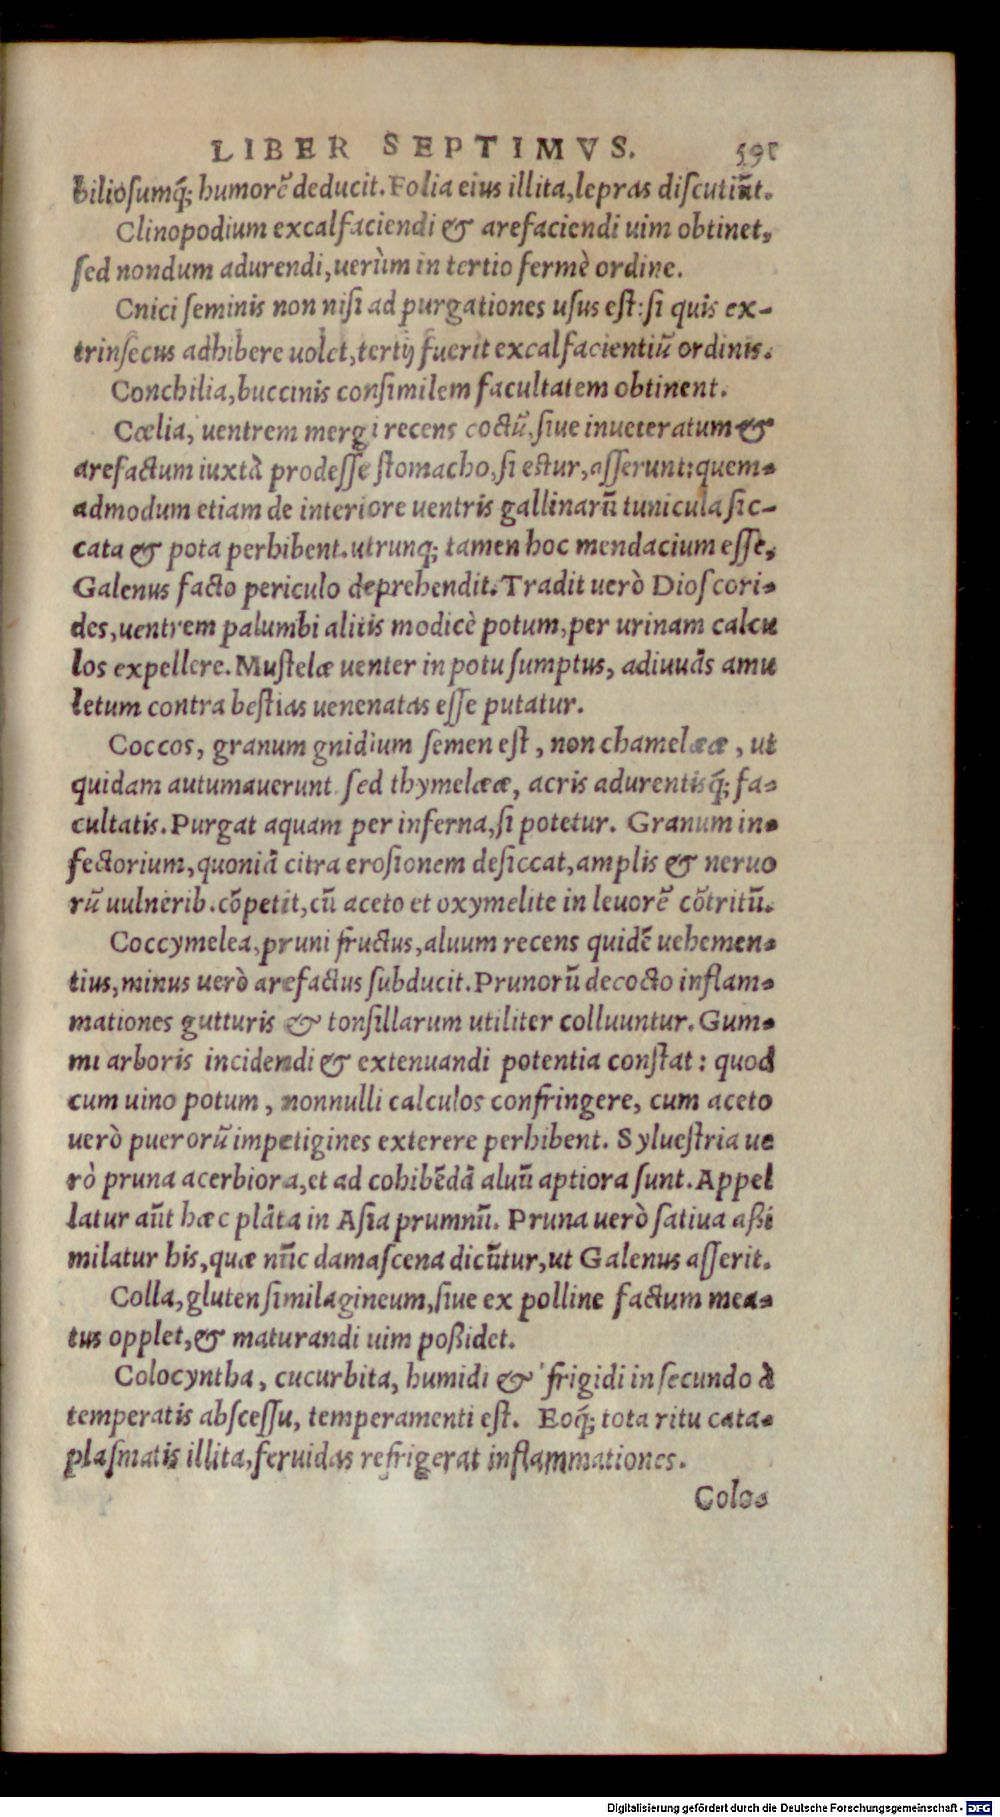 LIBER SEPTIMVS. 591
biliosumq́; humorẽ deducit. Folia eius illita, lepras discutiũt.
Clinopodium excalfaciendi & arefaciendi uim obtinet,
sed nondum adurendi, uerùm in tertio fermè ordine.
Cnici seminis non nisi ad purgationes usus est: si quis ex-
trinsecus adhibere uolet, tertij fuerit excalfacientiũ ordinis.
Conchilia, buccinis consimilem facultatem obtinent.
Cœlia, uentrem mergi recens coctũ, siue inueteratum &
arefactum iuxtà prodesse stomacho, si estur, asserunt: quem-
admodum etiam de interiore uentris gallinarũ tunicula sic-
cata & pota perhibent. utrunq; tamen hoc mendacium esse,
Galenus facto periculo deprehendit. Tradit uerò Dioscori-
des, uentrem palumbi alitis modicè potum, per urinam calcu
los expellere. Mustelæ uenter in potu sumptus, adiuuãs amu
letum contra bestias uenenatas esse putatur.
Coccos, granum gnidium semen est, non chamelææ, ut
quidam autumauerunt sed thymelææ, acris adurentisq́; fa-
cultatis. Purgat aquam per inferna, si potetur. Granum in-
fectorium, quoniã citra erosionem desiccat, amplis & neruo
rũ uulnerib. cõpetit, cũ aceto et oxymelite in leuorẽ cõtritũ.
Coccymelea, pruni fructus, aluum recens quidẽ uehemen-
tius, minus uerò arefactus subducit. Prunorũ decocto inflam-
mationes gutturis & tonsillarum utiliter colluuntur. Gum-
mi arboris incidendi & extenuandi potentia constat: quod
cum uino potum, nonnulli calculos confringere, cum aceto
uerò puerorũ impetigines exterere perhibent. Syluestria ue
rò pruna acerbiora, et ad cohibẽdã aluũ aptiora sunt. Appel
latur aũt hæc plãta in Asia prumnũ. Pruna uerò satiua aßi
milatur his, quæ nũc damascena dicũtur, ut Galenus asserit.
Colla, gluten similagineum, siue ex polline factum mea-
tus opplet, & maturandi uim poßidet.
Colocyntha, cucurbita, humidi & frigidi in secundo à
temperatis abscessu, temperamenti est. Eoq́; tota ritu cata-
plasmatis illita, feruidas refrigerat inflammationes.
Colo-
Digitalisierung gefördert durch die Deutsche Forschungsgemeinschaft - DFG